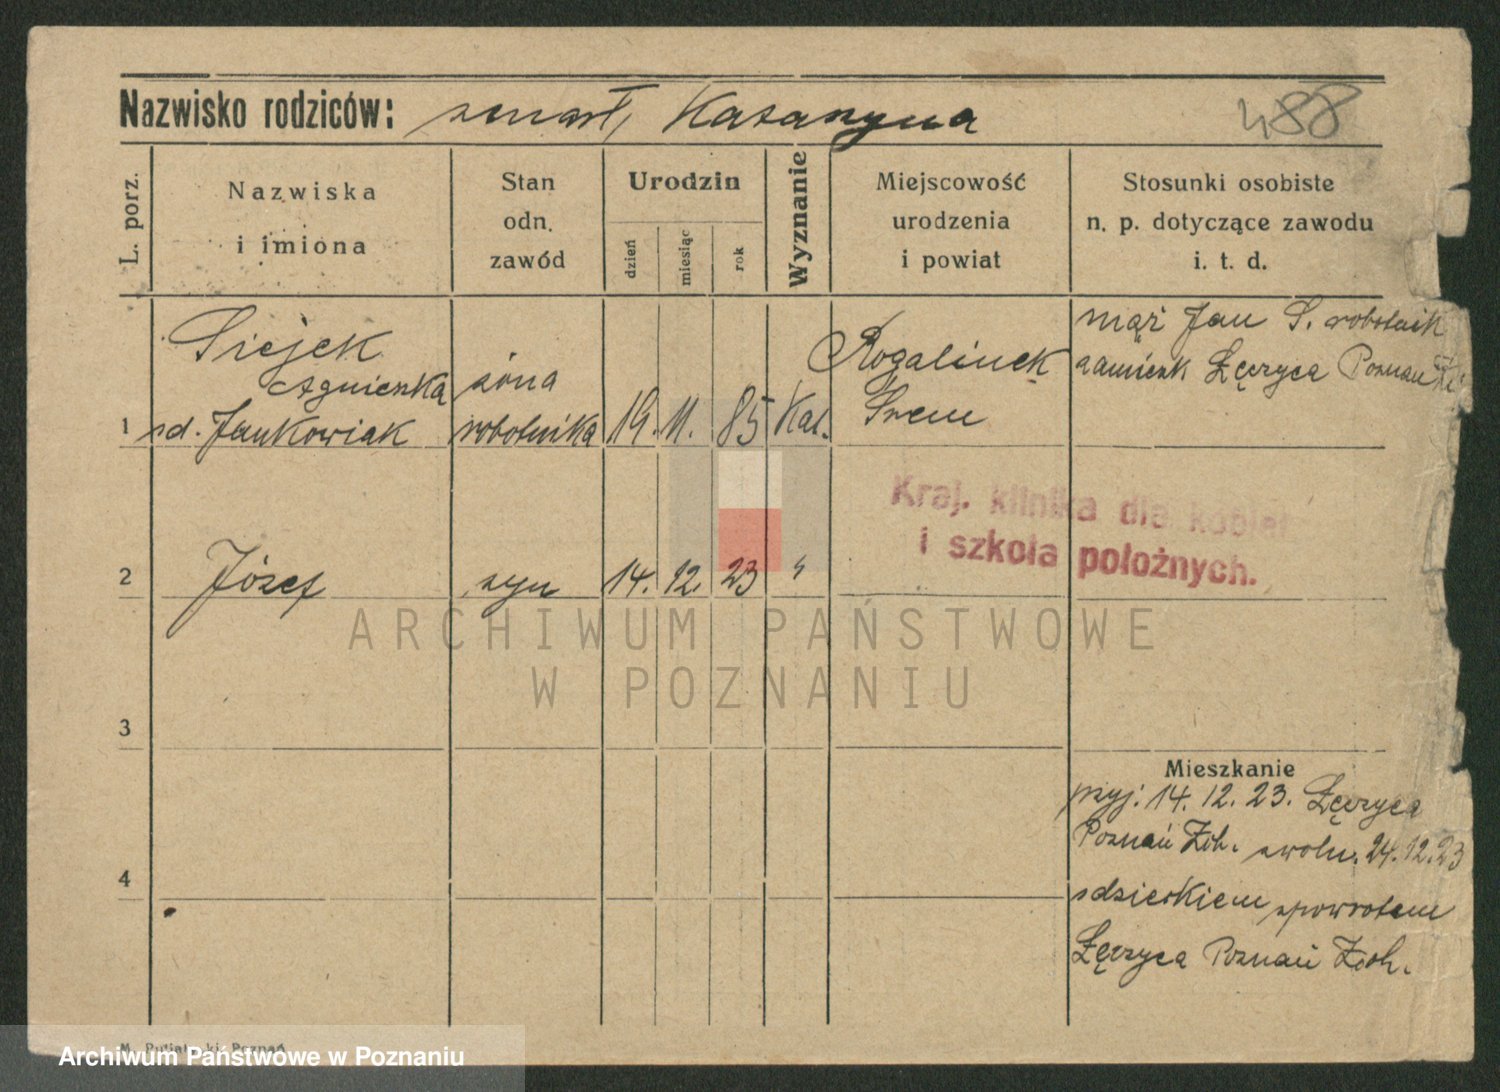 Nazwisko rodziców: zmarł, Katarzyna
488
L. porz.
Nazwiska
i imiona
Stan
odn.
zawód
Urodzin
dzień
miesiąc
rok
Wyznanie
Miejscowość
urodzenia
i powiat
Stosunki osobiste
n. p. dotyczące zawodu
i. t. d.
1
Siejek
Agnieszka
sd. Jankowiak
żona
robotnika
19. 11. 85
Kat.
Rogalinek
Śrem
mąż Jan S. robotnik
zamieszk Łęczyca Poznań
Kraj. klinika dla kobiet
i szkoła położnych.
2
Józef
syn
14. 12. 23 "
3
4
Mieszkanie
przyj. 14. 12. 23. Łęczyca
Poznań Zch. zwoln. 24.12.23
z dzieckiem zpowrotem
Łęczyca Poznań Zch.
ARCHIWUM PAŃSTWOWE
W POZNANIU
Poznań
Archiwum Państwowe w Poznaniu